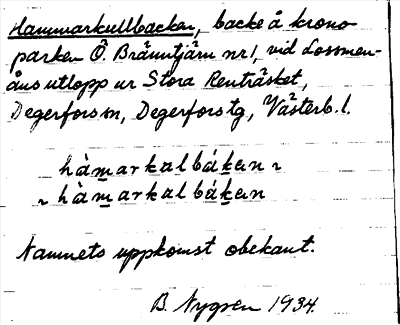 Hammarkullbacken, backe å krono-
parken Ö. Bränntjärn nr 1, vid Lossmen-
åns utlopp ur Stora Renträsket,
Degerfors sn, Degerfors tg, Västerb. l.
hàmarkalbákɐn ~
~ hàmarkalbákɐn
Namnets uppkomst obekant.
B. Nygren 1934.